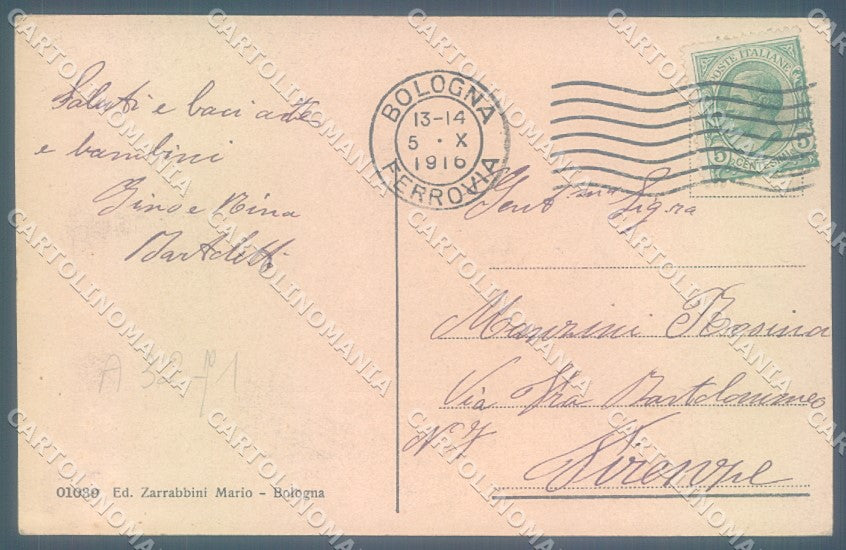 Saluti e baci a te
e bambini
Gino e Nina
Bartoletti
A 32
01030 Ed. Zarrabbini Mario - Bologna
BOLOGNA
13-14
5 · X
1916
FERROVIA
POSTE ITALIANE
5 CENTESIMI 5
Gent.ma Sig.ra
Manzini Rosina
Via Fra Bartolommeo
N 7
Firenze
CARTOLINOMANIA